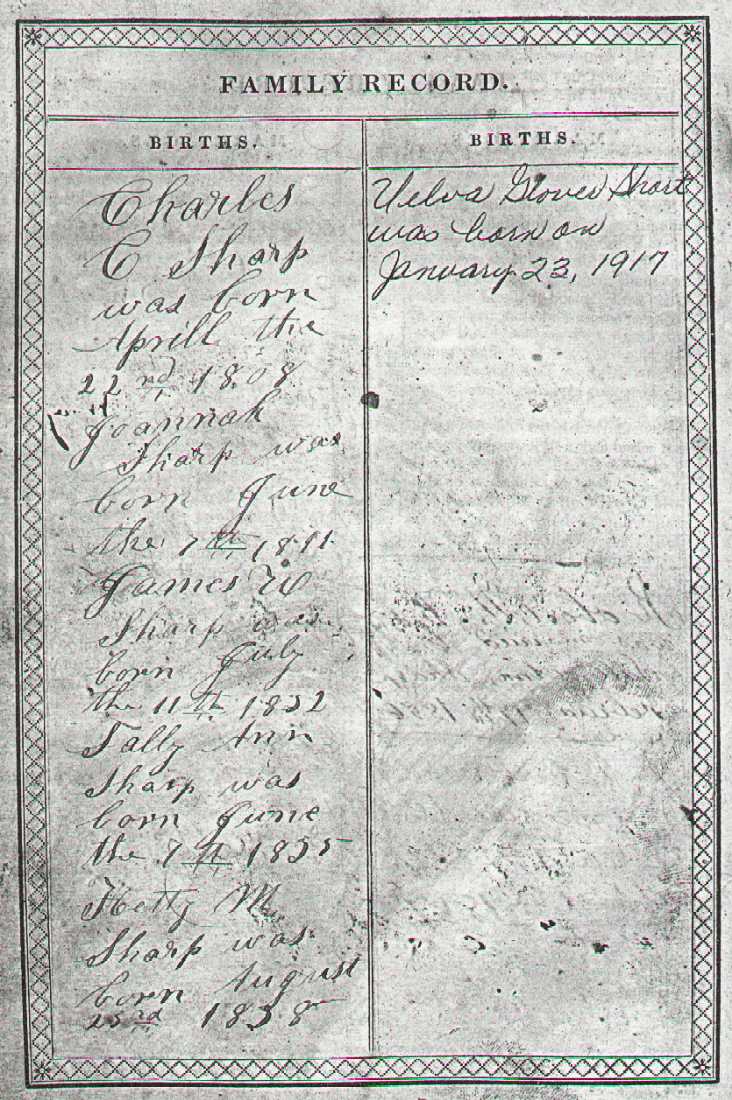 FAMILY RECORD.
BIRTHS.
Charles
C Sharp
was born
Aprill the
22nd 1808
Joannah
Sharp was
born June
the 7th 1811
James W
Sharp was
born July
the 11th 1832
Sally Ann
Sharp was
born June
the 7th 1835
Hetty M
Sharp was
born August
23rd 1838
BIRTHS.
Velva Glover Short
was born on
January 23, 1917